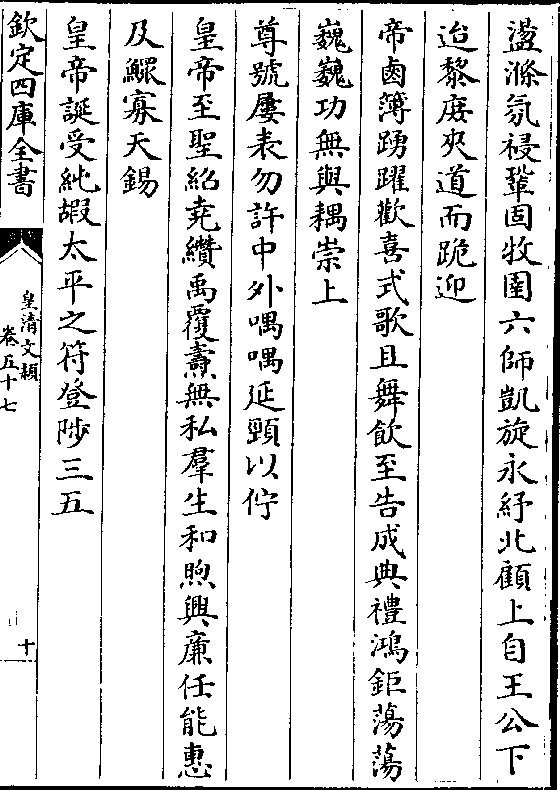 盪滌氛祲鞏固牧圉六師凱旋永紓北顧上自王公下
迨黎庶夾道而跪迎
帝鹵簿踴躍歡喜式歌且舞飲至告成典禮鴻鉅蕩蕩
巍巍功無與耦崇上
尊號屢表勿許中外喁喁延頸以佇
皇帝至聖紹堯纘禹覆燾無私羣生和煦興廉任能惠
及鰥寡天錫
皇帝誕受純嘏太平之符登陟三五
欽定四庫全書
皇清文穎
卷五十七
十